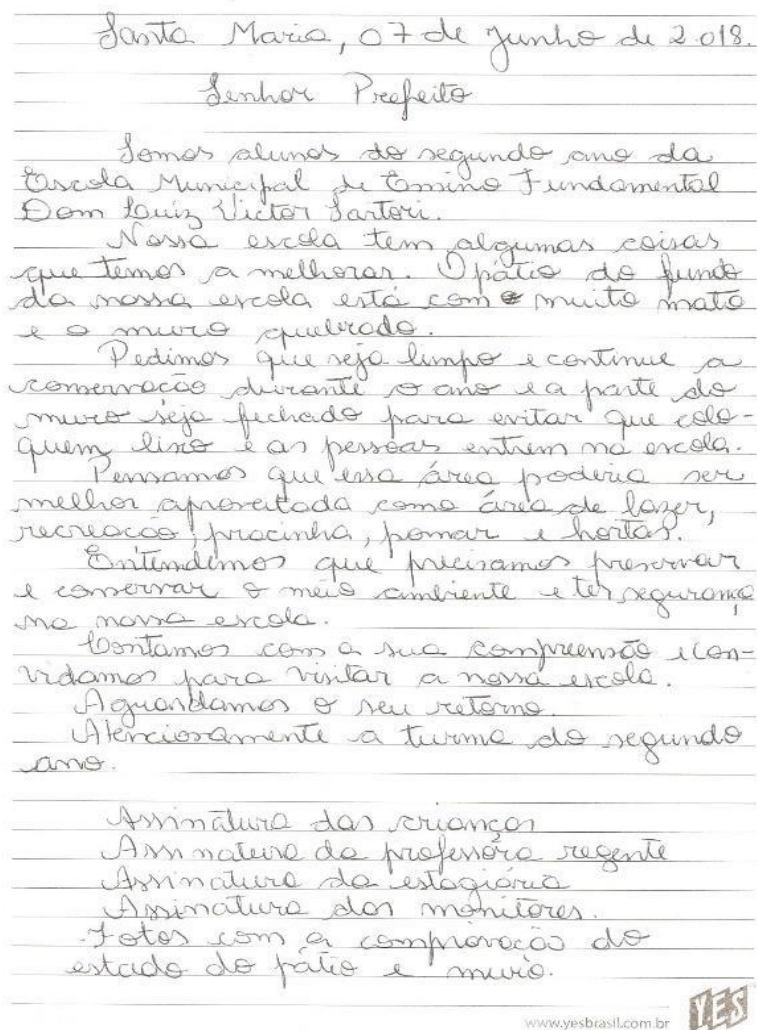 Santa Maria, 07 de Junho de 2.018.
Senhor Prefeito
Somos alunos do segundo ano da
Escola Municipal de Ensino Fundamental
Dom Luiz Victor Sartori.
Nossa escola tem algumas coisas
que temos a melhorar. O pátio do fundo
da nossa escola está com muito mato
e o muro quebrado.
Pedimos que seja limpo e continue a
conservação durante o ano e a parte do
muro seja fechado para evitar que colo-
quem lixo e as pessoas entrem na escola.
Pensamos que essa área poderia ser
melhor aproveitada como área de lazer,
recreacão, pracinha, pomar e hortas.
Entendemos que precisamos preservar
e conservar o meio ambiente e ter segurança
na nossa escola.
Contamos com a sua compreensão e con-
vidamos para visitar a nossa escola.
Aguardamos o seu retorno.
Atenciosamente a turma do segundo
ano.
Assinatura das crianças
Assinatura da professora regente
Assinatura da estagiária
Assinatura dos monitores.
Fotos com a comprovação do
estado do pátio e muro.
www.yesbrasil.com.br YES